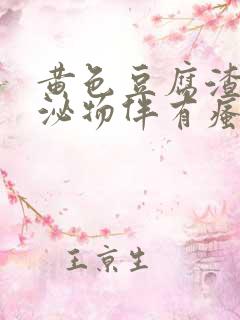 黄色豆腐渣
泌物伴有瘙
王京生